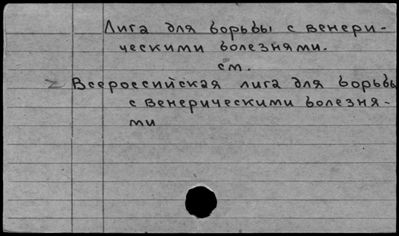 Лига для борьбы с венери-
ческими болезнями.
см.
Всероссийская лига для борьбы
с венерическими болезня-
ми